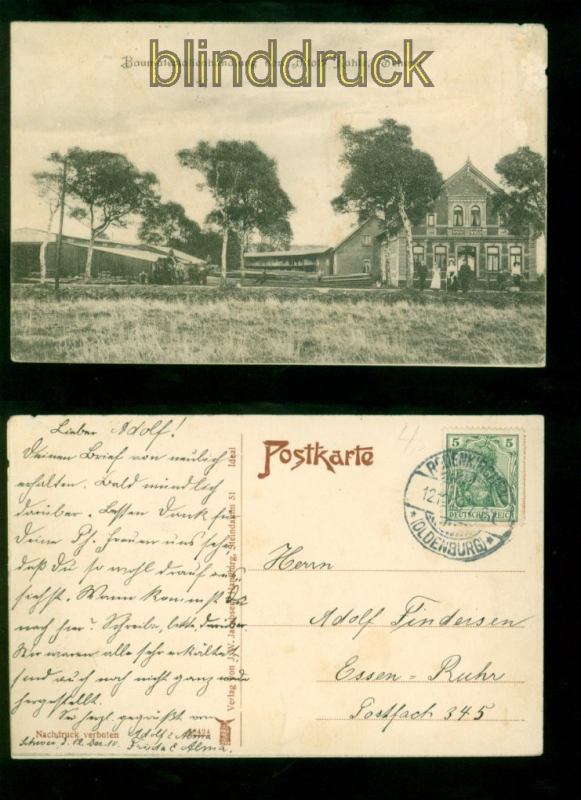 blinddruck
Baumaterialienhandlung von Adolf
Lieber Adolf!
Deinen Brief von neulich
erhalten. Bald mündlich
darüber. Besten Dank für
Deine Ph. Freuen uns sehr
daß Du so wohl drauf aus
siehst. Wann kommst Du
noch her? Schreibe, bitte, darüber.
Wir waren alle sehr erkältet
sind auch noch nicht ganz wieder
hergestellt.
Sei herzl. gegrüßt von
Adolf & Alma
Frieda & Alma.
d. 12. Dez. 10.
Nachdruck verboten
Verlag von J. W. Hamburg, Steindamm 51 Ideal
Postkarte
5 5
DEUTSCHES REICH
RODENKIRCHEN
12.12
* (OLDENBURG) *
Herrn
Adolf Findeisen
Essen = Ruhr
Postfach 345